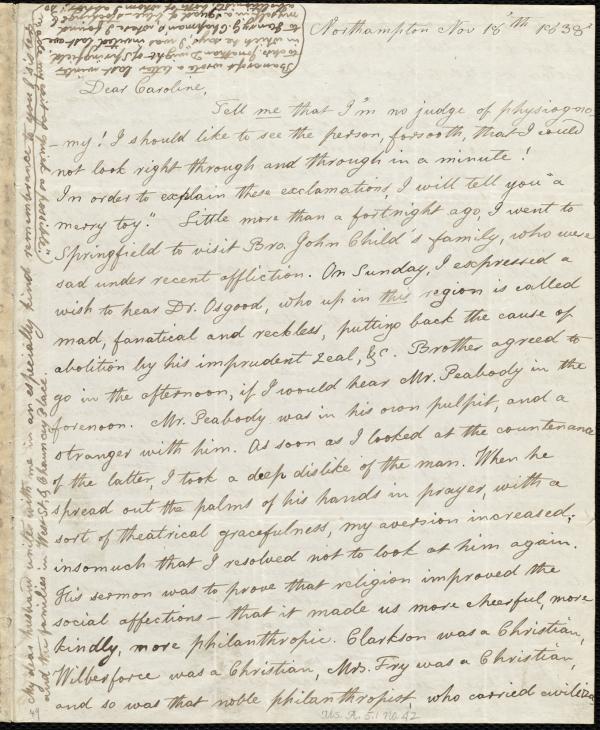 Northampton Nov 18'th 1838
Dear Caroline,
Tell me that I'm no judge of physiogno-
my! I should like to see the person, forsooth, that I could
not look right through and through in a minute!
In order to explain these exclamations, I will tell you "a
merry toy." Little more than a fortnight ago, I went to
Springfield to visit Bro. John Child's family, who were
sad under recent affliction. On Sunday, I expressed a
wish to hear Dr. Osgood, who up in this region is called
mad, fanatical and reckless, putting back the cause of
abolition by his imprudent zeal, &c. Brother agreed to
go in the afternoon, if I would hear Mr. Peabody in the
forenoon. Mr. Peabody was in his own pulpit, and a
stranger with him. As soon as I looked at the countenance
of the latter, I took a deep dislike of the man. When he
spread out the palms of his hands in prayer, with a
sort of theatrical gracefulness, my aversion increased;
insomuch that I resolved not to look at him again.
His sermon was to prove that religion improved the
social affections — that it made us more cheerful, more
kindly, more philanthropic. Clarkson was a Christian,
Wilberforce was a Christian, Mrs. Fry was a Christian,
and so was that noble philanthropist, who carried civiliza
Ms. A. 5.1 no. 42
My dear husband unites with me in an especially kind remembrance to you
and the families in West St & Chauncy Place.
Bancroft wrote a letter last winter
to Jonathan Dwight of Springfield
in which he says,